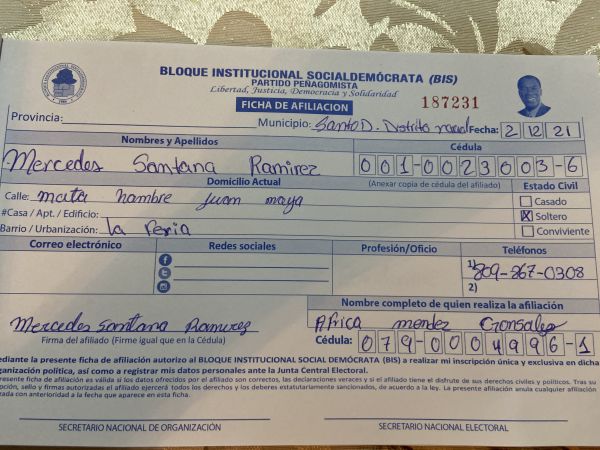 BLOQUE INSTITUCIONAL SOCIALDEMÓCRATA (BIS)
PARTIDO PEÑAGOMISTA
Libertad, Justicia, Democracia y Solidaridad
FICHA DE AFILIACION
187231
Provincia:
Municipio: Santo D. Distrito nacial Fecha: 2 12 21
Nombres y Apellidos
Cédula
Mercedes Santana Ramirez
001-0023003-6
Domicilio Actual
(Anexar copia de cédula del afiliado)
Estado Civil
Calle: mata hambre juan maya
Casado
#Casa / Apt. / Edificio:
X Soltero
Barrio / Urbanización: la Feria
Conviviente
Correo electrónico
Redes sociales
Profesión/Oficio
Teléfonos
1) 809-867-0308
2)
Nombre completo de quien realiza la afiliación
Mercedes Santana Ramirez
Africa mendez Gonsalez
Firma del afiliado (Firme igual que en la Cédula)
Cédula: 079-0004996-1
ediante la presente ficha de afiliación autorizo al BLOQUE INSTITUCIONAL SOCIAL DEMÓCRATA (BIS) a realizar mi inscripción única y exclusiva en dicha
ganización política, así como a registrar mis datos personales ante la Junta Central Electoral.
presente ficha de afiliación es válida si los datos ofrecidos por el afiliado son correctos, las declaraciones veraces y si el afiliado tiene el disfrute de sus derechos civiles y políticos. Tras su
pción, sello y firmas autorizadas el afiliado ejercerá todos los derechos y los deberes estatutariamente sancionados, de acuerdo a la ley. La presente afiliación anula cualquier afiliación
zada con anterioridad a la fecha que aparece en esta ficha.
SECRETARIO NACIONAL DE ORGANIZACIÓN
SECRETARIO NACIONAL ELECTORAL